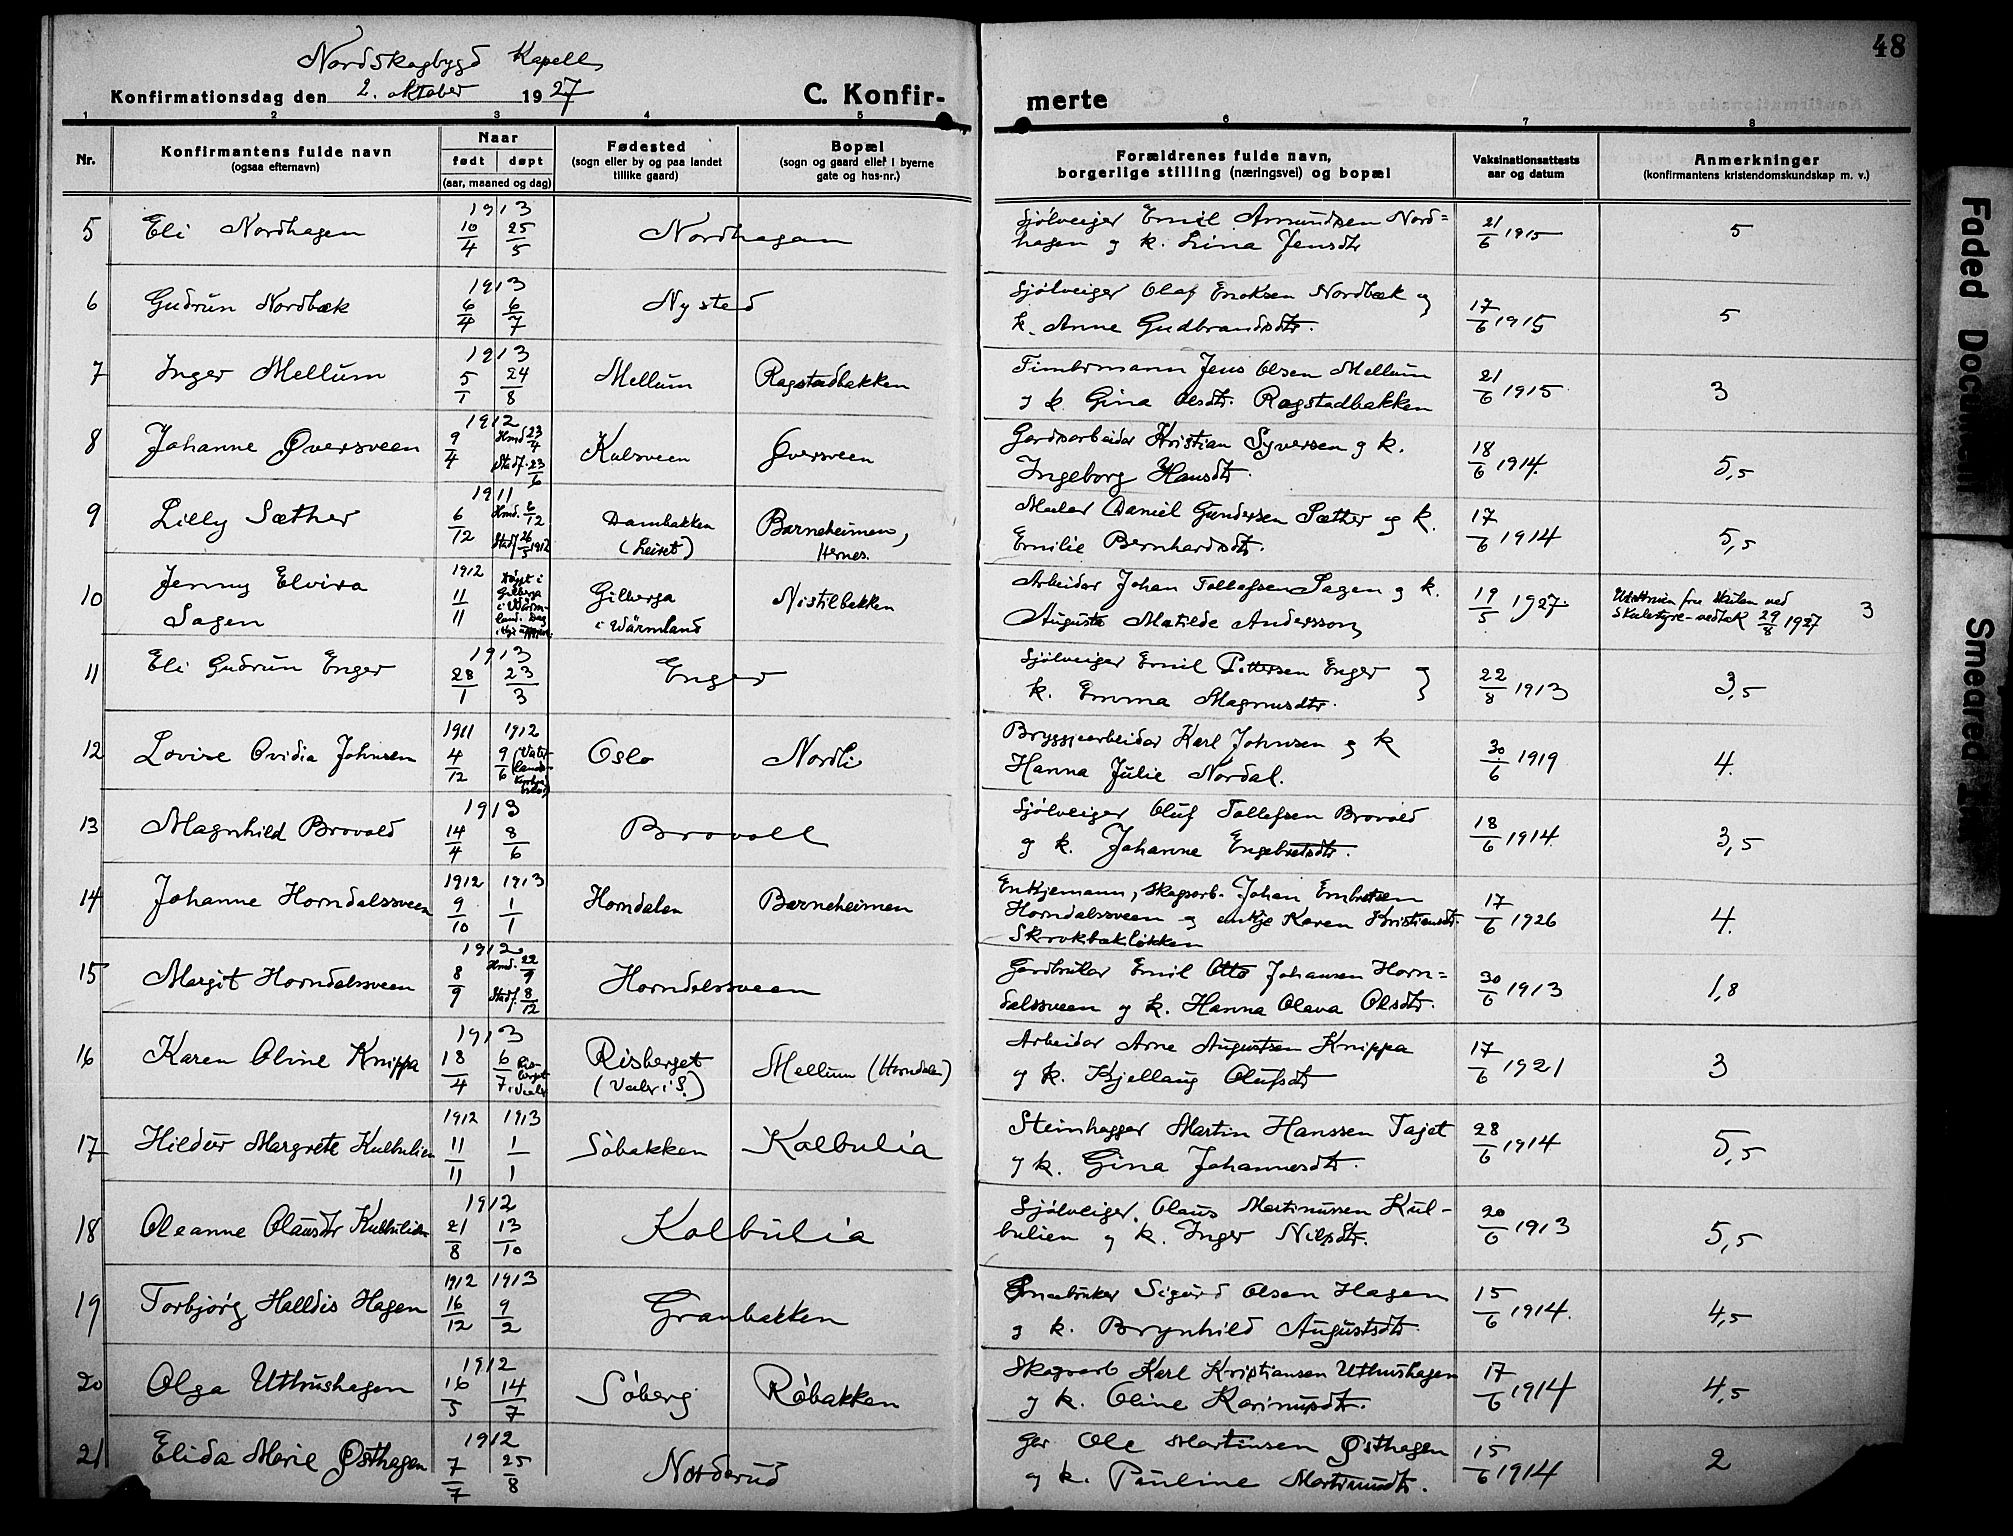 48
Nordskogbygd Kapell
Konfirmationsdag den 2. oktober 1927
C. Konfir-
merte
1 2 3 4 5 6 7 8
Nr.
Konfirmantens fulde navn
(ogsaa efternavn)
Naar
født døpt
(aar, maaned og dag)
Fødested
(sogn eller by og paa landet
tillike gaard)
Bopæl
(sogn og gaard eller i byerne
gate og hus-nr.)
Forældrenes fulde navn,
borgerlige stilling (næringsvei) og bopæl
Vaksinationsattests
aar og datum
Anmerkninger
(konfirmantens kristendomskundskap m. v.)
5 Eli Nordhagen 1913 10/4 25/5 Nordhagan Sjølveiger Emil Amundsen Nord=
hagen og k. Lina Jensdtr 21/6 1915 5
6 Gudrun Nordbæk 1913 6/4 6/7 Nysted Sjølveiger Olaf Enoksen Nordbæk og
k. Anne Gudbrandsdtr. 17/6 1915 5
7 Inger Mellum 1913 5/1 24/8 Mellum Ragstadbakken Timbrmann Jens Olsen Mellum
og k. Gina Olesdtr. Ragstadbakken 21/6 1915 3
8 Johanne Øversveen 1912 9/4 Hmd 23/4 Stadf. 23/6 Kulsveen Øversveen Gardsarbeidar Kristian Syversen og k.
Ingeborg Hansdtr. 18/6 1914. 5,5
9 Lilly Sæther 1911 6/12 Hmd. 6/12 Stadf 26/5 1912 Dambakken
(Leiret) Barneheimen,
Hernes. Maler Daniel Gundersen Sæther og k.
Emilie Bernhardsdtr. 17/6 1914 5,5
10 Jenny Elvira
Sagen 1912 11/11 Døypt i
Gilberga
i Wärm-
land. Dag
Gilberga
i Wärmland Nistilbakken Arbeidar Johan Tollefsen Sagen og k.
Augusta Matilde Andersson 19/5 1927 fra skulen ved
Skulestyre-vedtak 29/8 1927 3
11 Eli Gudrun Enger 1913 28/1 23/3 Enger Sjølveiger Emil Pettersen Enger og
k. Emma Magnusdtr. 22/8 1913 3,5
12 Lovise Ovidia Johnsen 1911 4/12 1912 9/6 Oslo Nordli Bryggjearbeidar Karl Johnsen og k
Hanna Julie Nordal. 30/6 1919 4.
13 Magnhild Brovold 1913 14/4 8/6 Brovoll Sjølveiger Oluf Tollefsen Brovold
og k. Johanne Engebretsdtr. 18/6 1914. 3,5
14 Johanne Horndalssveen 1912 9/10 1913 1/1 Horndalen Barneheimen Enkjemann, skogsarb. Johan Embretsen
Horndalssveen og enkje Karen Kristiansdtr.
Skrukbækløkken 17/6 1926 4.
15 Margit Horndalssveen 1912 8/9 Hmd. 22/9 Stadf. 8/12 Horndalssveen Gardbrukar Emil Otto Johansen Horn=
dalssveen og k. Hanna Olava Olsdtr. 30/6 1913 1,8
16 Karen Oline Knippa 1913 18/4 6/7 Ris-
berget
i Vaaler Risberget
(Vaaler i S.) Mellum (Horndalen) Arbeidar Arne Augustsen Knippa
og k. Kjellaug Olufsdtr 17/6 1921 3
17 Hildur Margrete Kulbulien 1912 11/11 1913 1/1 Søbakken Kolbulia Steinhogger Martin Hanssen Tajet
og k. Gina Johannesdtr. 28/6 1914 5,5
18 Oleanne Olausdtr Kulbulien 1912 21/8 13/10 Kolbulia Sjølveiger Olaus Martinussen Kul-
bulien og k. Inger Nilsdtr. 20/6 1913 5,5
19 Torbjørg Halldis Hagen 1912 16/12 1913 9/2 Granbakken Smaabruker Sigurd Olsen Hagen
og k. Brynhild Augustsdtr. 15/6 1914. 4,5
20 Olga Uthushagen 1912 16/5 14/7 Søberg Røbakken Skogsarb Karl Kristiansen Uthushagen
og k. Oline Karinusdtr. 17/6 1914 4,5
21 Elida Marie Østhagen 1912 7/7 25/8 Norderud Ger Ole Martinsen Østhagen
og k. Pauline Martinusdtr. 15/6 1914 2
Faded Document
Smeared Ink